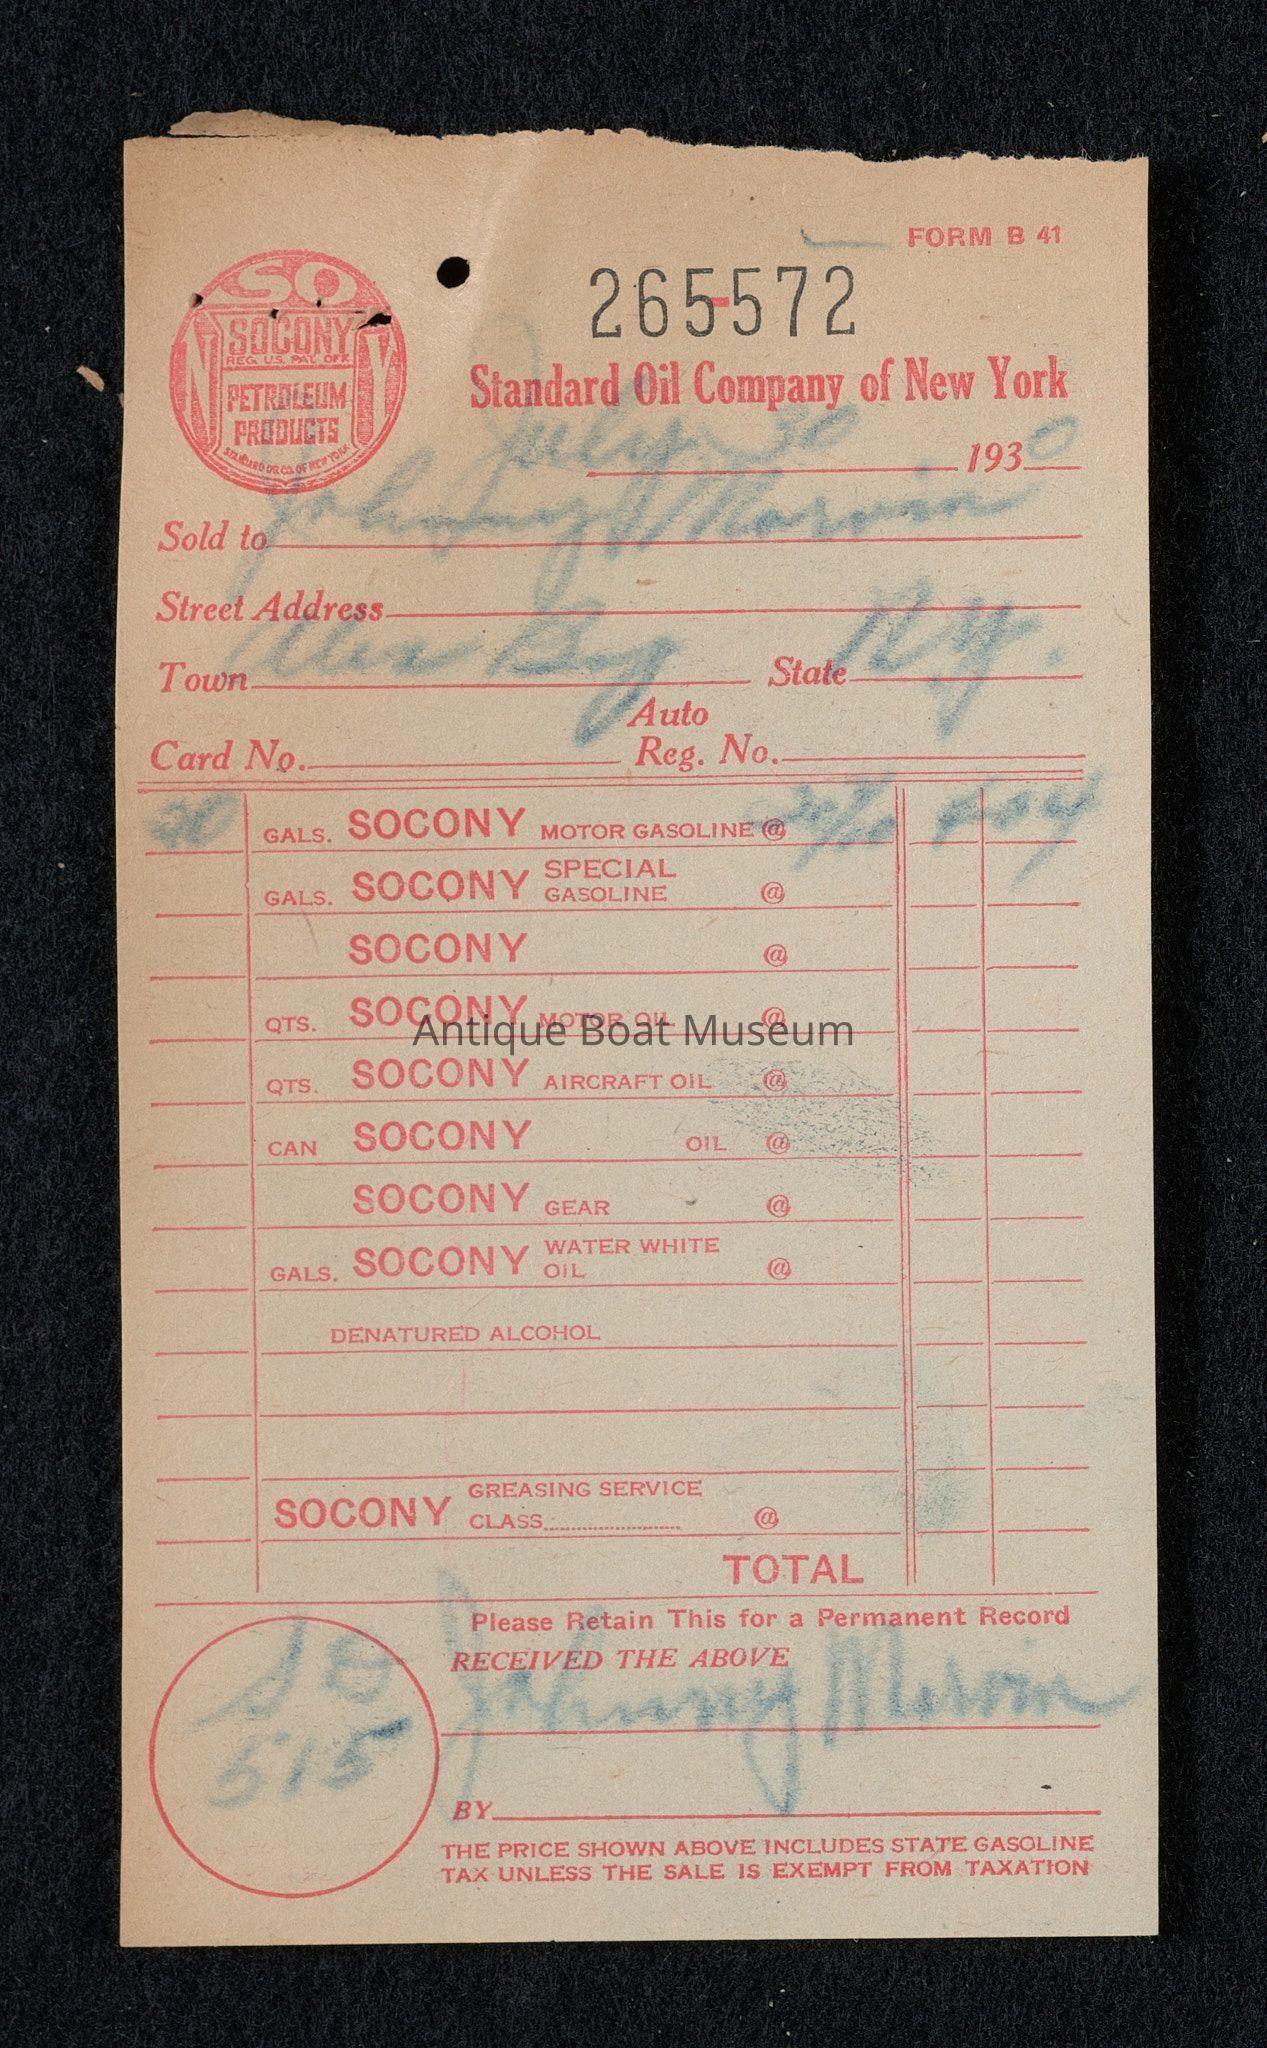 FORM B 41
265-572
SO
SOCONY
REG. U.S. PAT. OFF.
PETROLEUM
PRODUCTS
STANDARD OIL CO. OF NEW YORK
N Y
Standard Oil Company of New York
July 30 1930
Sold to Johnny Marvin
Street Address
Town Alex Bay State N.Y.
Card No. Auto Reg. No.
GALS. SOCONY MOTOR GASOLINE @
GALS. SOCONY SPECIAL GASOLINE @
SOCONY @
QTS. SOCONY MOTOR OIL @
Antique Boat Museum
QTS. SOCONY AIRCRAFT OIL @
CAN SOCONY OIL @
SOCONY GEAR @
GALS. SOCONY WATER WHITE OIL @
DENATURED ALCOHOL
SOCONY GREASING SERVICE CLASS @
TOTAL
Please Retain This for a Permanent Record
RECEIVED THE ABOVE
Johnny Marvin
515
BY
THE PRICE SHOWN ABOVE INCLUDES STATE GASOLINE
TAX UNLESS THE SALE IS EXEMPT FROM TAXATION